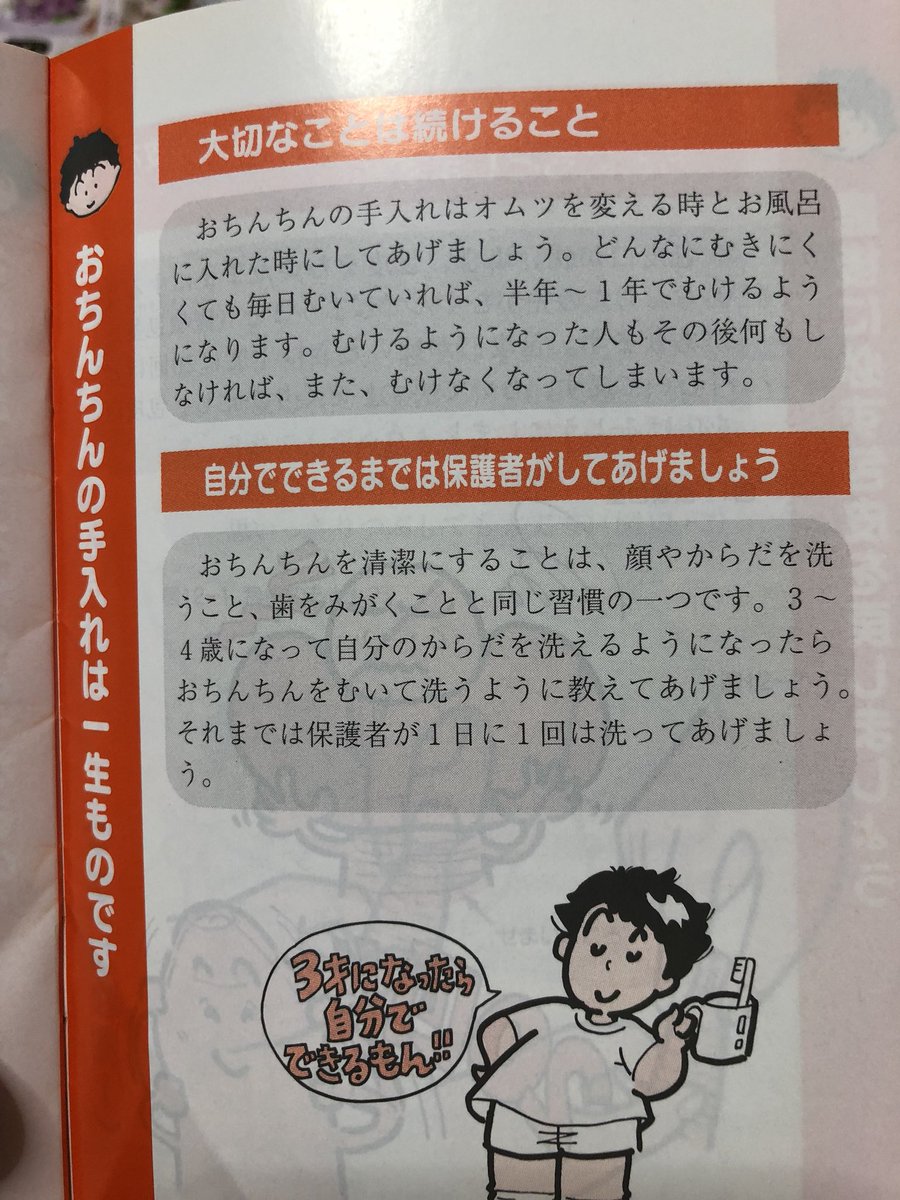 おちんちんの手入れは一生ものです
大切なことは続けること
おちんちんの手入れはオムツを変える時とお風呂
に入れた時にしてあげましょう。どんなにむきにく
くても毎日むいていれば、半年〜1年でむけるよう
になります。むけるようになった人もその後何もし
なければ、また、むけなくなってしまいます。
自分でできるまでは保護者がしてあげましょう
おちんちんを清潔にすることは、顔やからだを洗
うこと、歯をみがくことと同じ習慣の一つです。3〜
4歳になって自分のからだを洗えるようになったら
おちんちんをむいて洗うように教えてあげましょう。
それまでは保護者が1日に1回は洗ってあげましょ
う。
3才になったら
自分で
できるもん!!